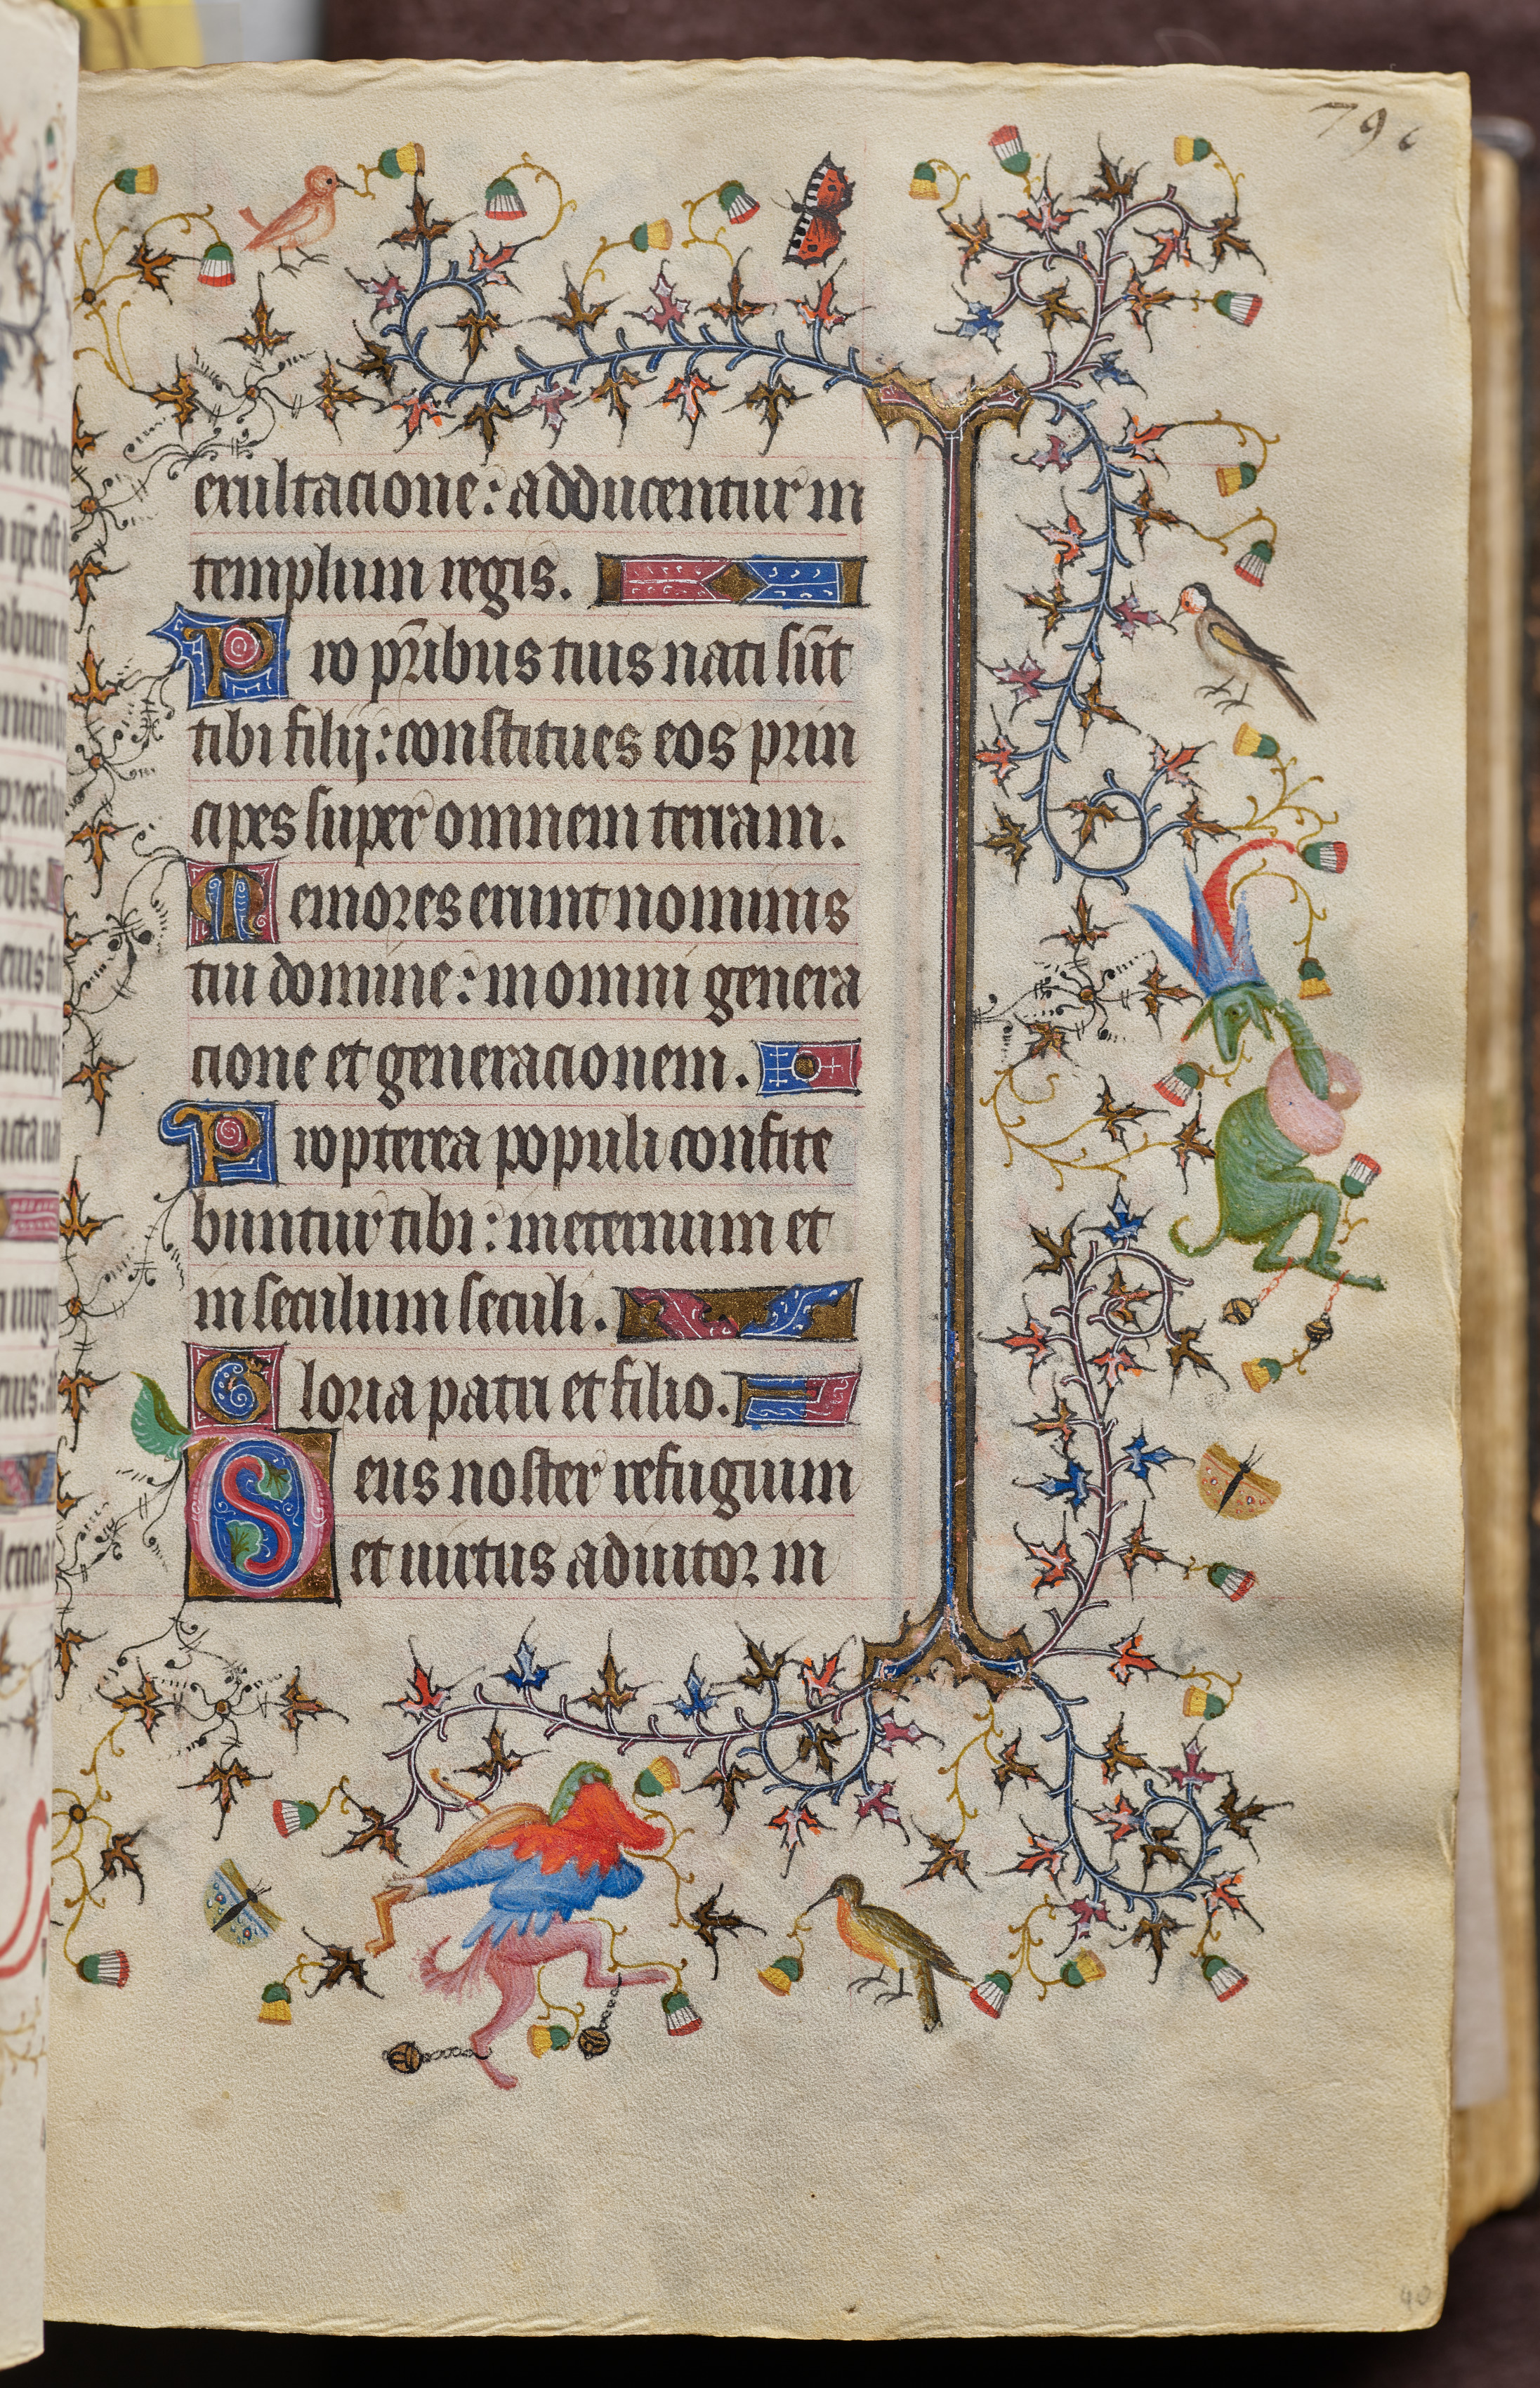 796
exultacione: adducentur in
templum regis.
Pro pr̄ibus tuis nati sūt
tibi filij: constitues eos prin
cipes super omnem terram.
Memores erunt nominis
tui domine: in omni genera
cione et generacionem.
Propterea populi confite
buntur tibi: in eternum et
in seculum seculi.
Gloria patri et filio.
Deus noster refugium
et uirtus adiutor in
40